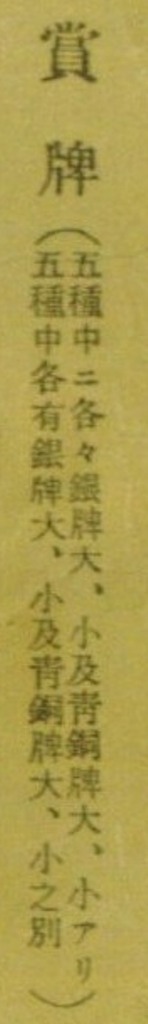 賞牌
(五種中ニ各々銀牌大、小及青銅牌大、小アリ
五種中各有銀牌大、小及青銅牌大、小之別)